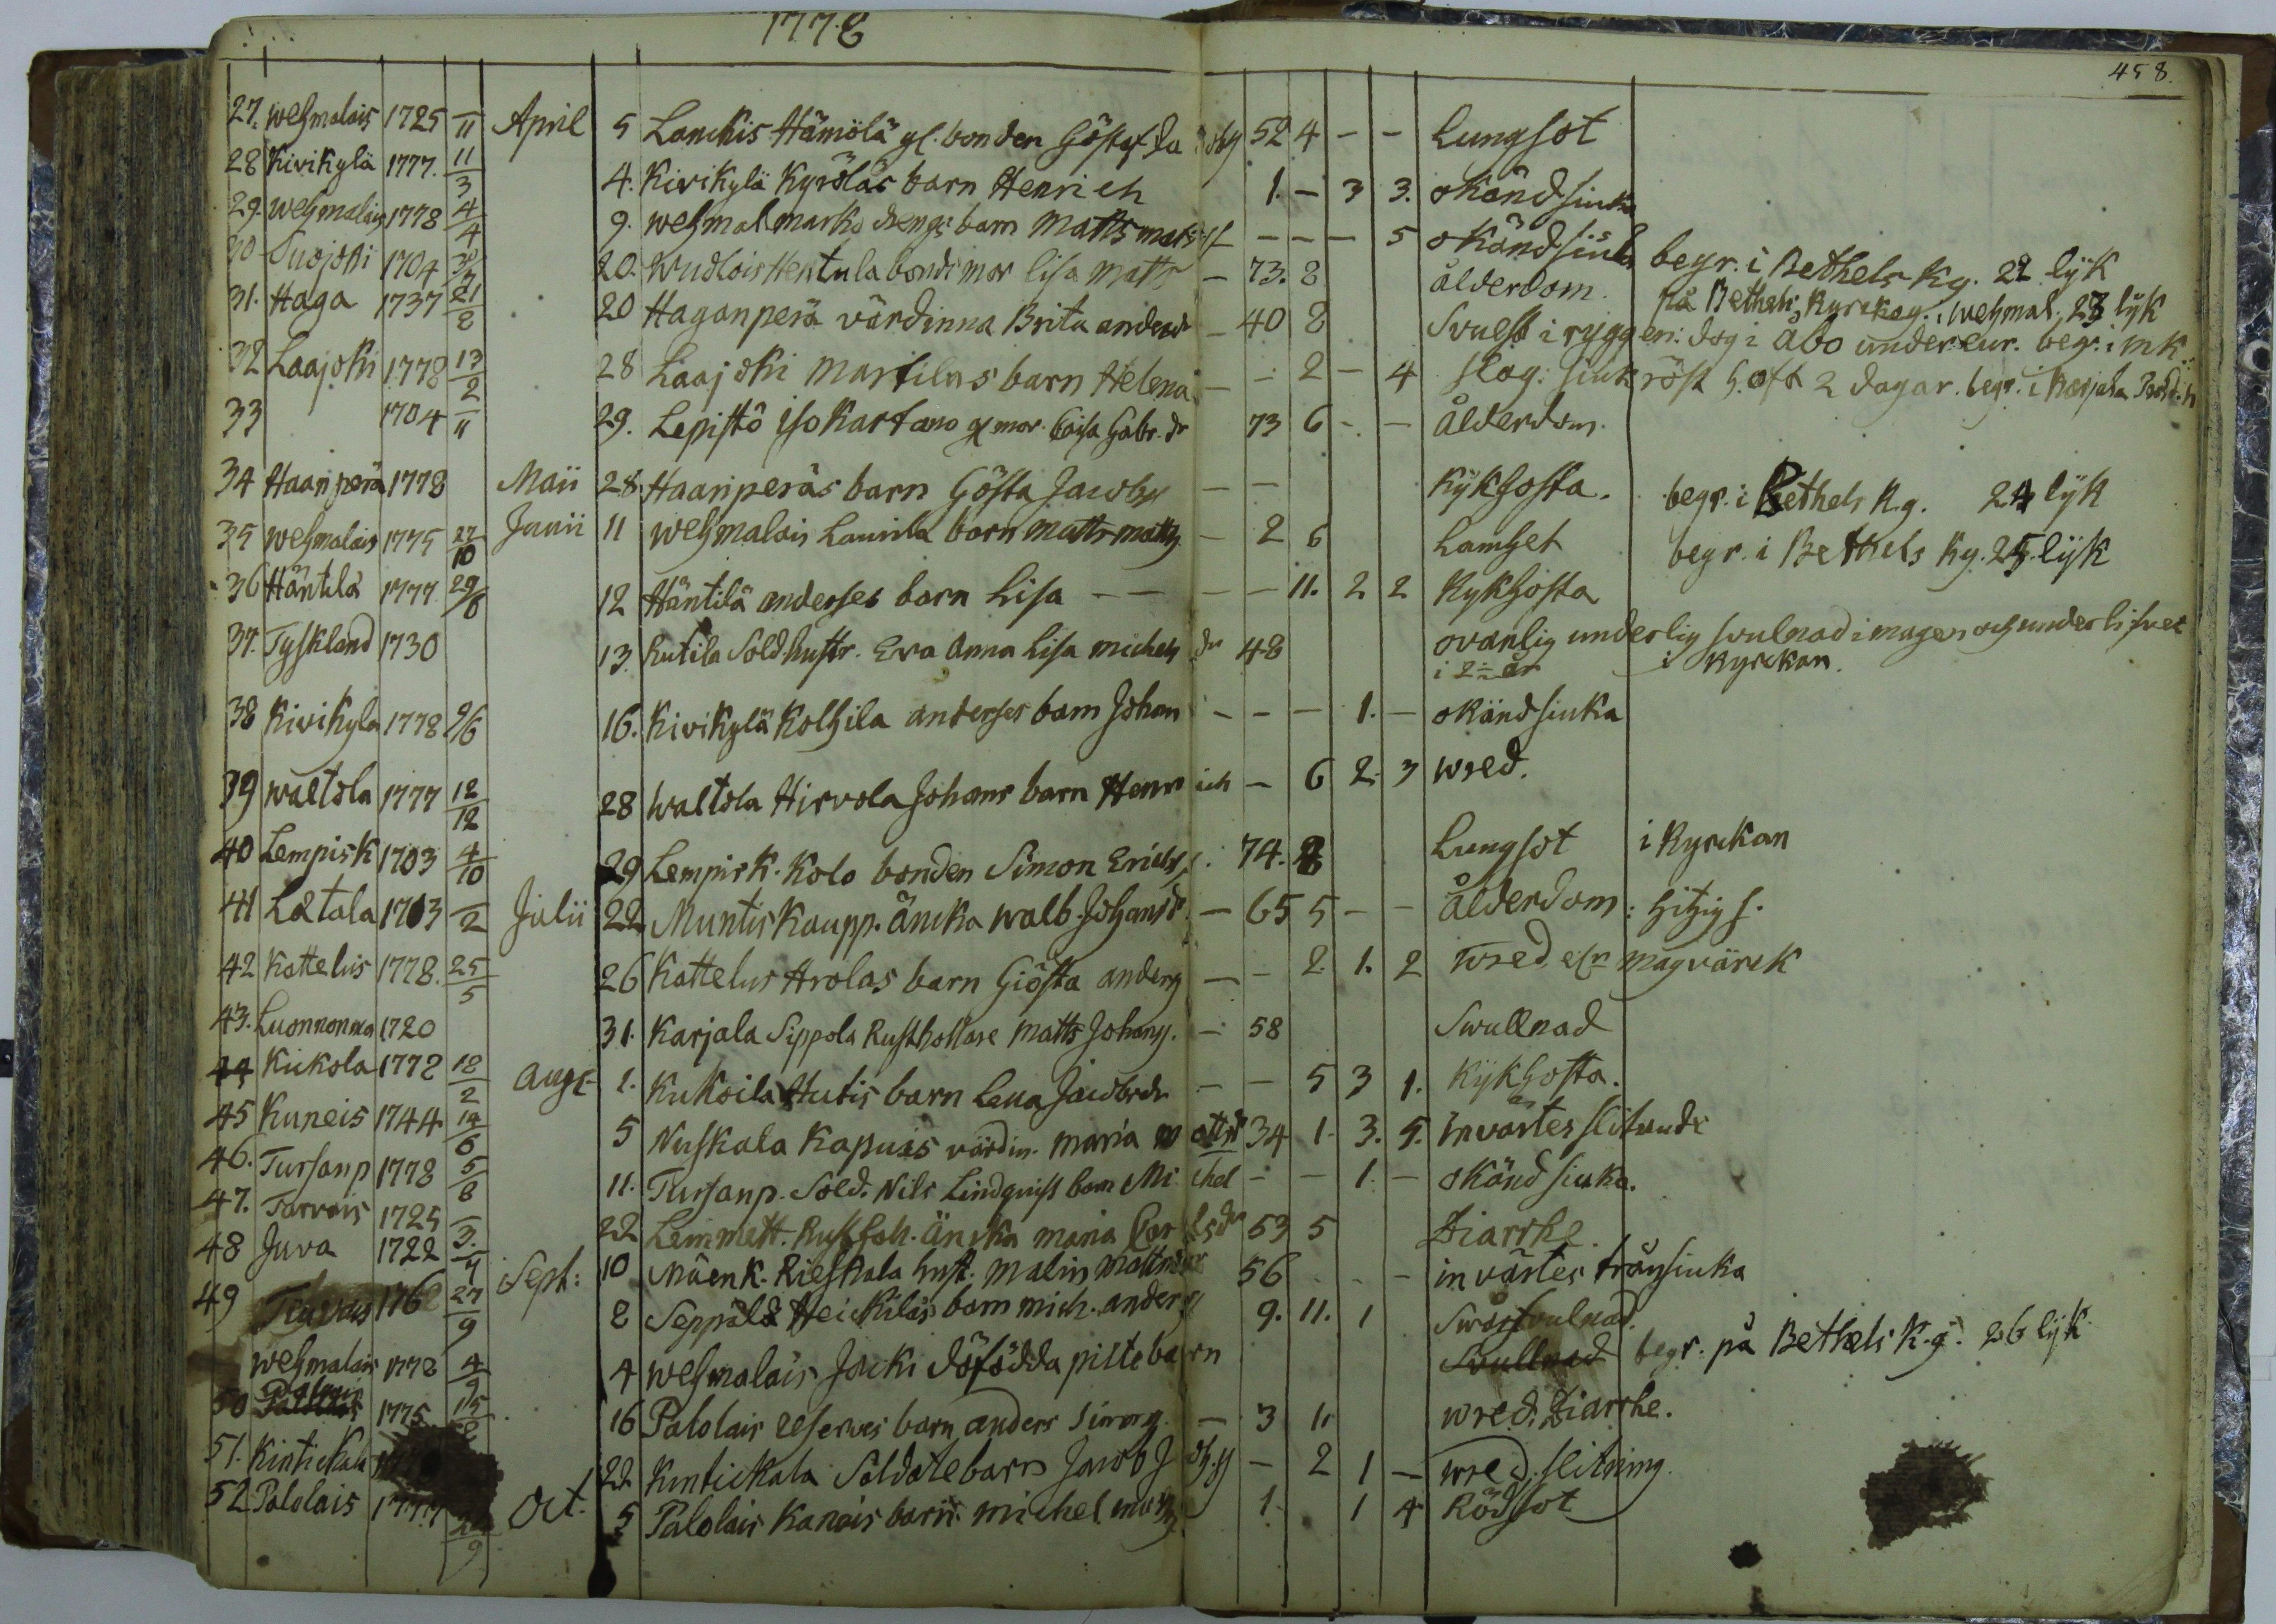 1778
458.
27. wehmalais 1725 – 11 April 5 Lanckis Hämölä gl. bonden Göstaf 52 4 – – Lungsot
28 Kivikylä 1777. 11 3 4. Kivikylä Kyrölas barn Henrich 1. – 3 3. okänd siuka
29. wehmalais 1778 4 4 9. wehmal marks drengs barn Matts – – – 5 okänd siuka begr. i Bethels Kg. 22 lyk
30 Tuojoki 1704 20. wudlois Hentula bondemor lisa Matts – 73. 8 ålderdom. på Bethels Kyrckog. i wehmal. 23 lyk
31. Haga 1737 21 2 20 Haganperä värdinna Brita andersdr – 40 8 Svulst i ryggen: dog i Åbo under cur. begr. i
32 Laajoki 1778 13 2 28 Laajoki Martilas barn Helena – – 2 – 4 slag: siuk röst h. oft 2 dagar. begr. i Karjala
33 1704 – 11 29. Lepistö isokartano gl mor. Caisa Gabr. dr 73 6 – – ålderdom.
34 Haanperä 1778 Maii 28 Haanperäs barn Gösta Jacobss – – Kykhosta. begr. i Bethels K.g. 24 lyk
35 wehmalais 1775 27 10 Junii 11 wehmalais Laurila barn matts matts – 2 6 Lamhet begr. i Bethels Kg. 25. lyk
36 Häntilä 1777 29/6 12 Häntilä anderses barn Lisa – – – – 11. 2 2 Kykhosta
37. Tyskland 1730 13. Rutila Sold hustr. Eva Anna Lisa michels dr 48 ovanlig underlig svulnad i magen och underlifvet
i 2 år i Kyrckan.
38 Kivikyla 1778 9/6 16. Kivikylä Kolhila anderses barn Johan – – – 1. – okänd siuka
39 waltola 1777 12 12 28 waltola Hirvola Johans barn Henrich – 6 2. 3 wred.
40 Lempisk 1703 4 10 29 Lempisk. Kolo bonden Simon Ericss. 74. 8 Lungsot i Kyrckan
41 Lætala 1713 – 2 Julii 22 Muntis Kaupp. äncka walb. Johansdr. – 65 5 – – ålderdom: hitzig s.
42 Kattelus 1778. 25 5 26 Kattelus Arolas barn Giösta anderss – – 2. 1. 2 wred elr magvärck
43. Luonnonma 1720 31. Karjala Sippola Rusthollare Matts Johanss. – 58 Swullnad
44 Kukola 1778 18 2 aug: 1. Kukoila Hutis barn Lena Jacobsdr – – 5 3 1. Kykhosta.
45 Kuneis 1744 14 6 5 Nuskala Kapuis värdin. maria mattsdr 34 1. 3. 5. invärtes slitande
46. Tursanp 1778 5 8 11. Tursanp. Sold. Nils Lindqvist barn Michel – – 1. – okänd siuka.
47. Tarvais 1725 – 3. 22 Lemmett. Rusthoh. Äncka maria Carlsdr 53 5 Diarrhe.
48 Juva 1722 – 4 Sept: 10 Mäenk. Rieskala hust. Malin Mattsdr 56 – invärtes trånsiuka
49 Tarvais 176 27 9 8 Seppälä Heickiläs barn mich. anderss 9. 11. 1 Svårsvulnad.
wehmalais 1778 4 9 4 wehmalais Jacki döfödda piltebarn Svullnad begr. på Bethels K.g. 26 lyk
50 Palolais 1775 15 16 Palolais reserves barn anders Simonss. – 3 11 wred. Diarrhe.
51. Kintickala 22 Kintickala Soldatebarn Jacob – 2 1 – wred. slitning.
52 Palolais 1777 9 Oct. 5 Palolais Kanois barn michel 1. 1 4 Rödsot